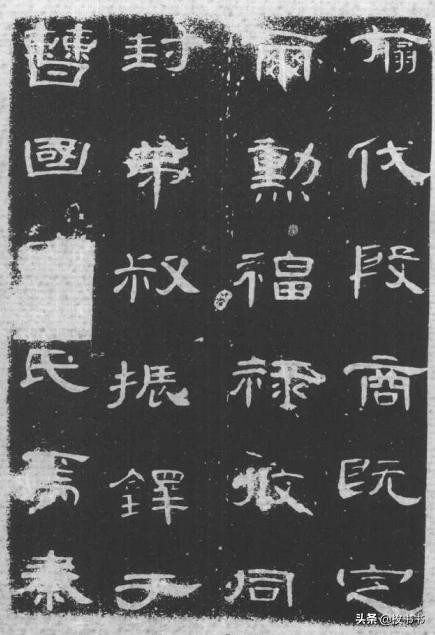 翦伐殷商既定
爾勳福祿攸同
封弟叔振鐸于
曹國氏焉秦
头条